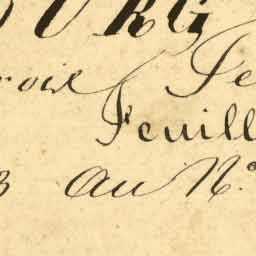 OURG
roix Fe
Feuill
3 au N.º